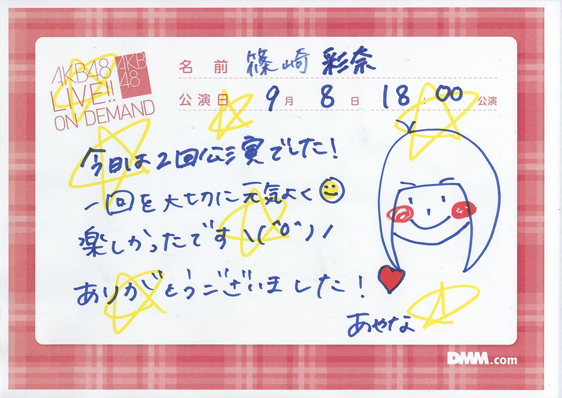 AKB48
LIVE!!
ON DEMAND
AKB
48
名前 篠崎 彩奈
公演日 9月 8日 18:00 公演
今日は2回公演でした!
一回を大切に元気よく
楽しかったです \(^o^)/
ありがとうございました!
あやな
DMM.com